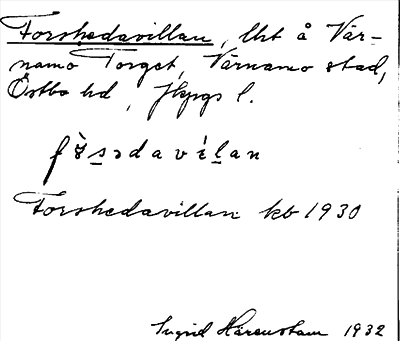 Forshedavillan, lht å Vär-
namo Torget, Värnamo stad,
Östbo hd, Jkpgs l.
fö̀s̱ədavíḻan
Forshedavillan kb 1930
Ingrid Härenstam 1932